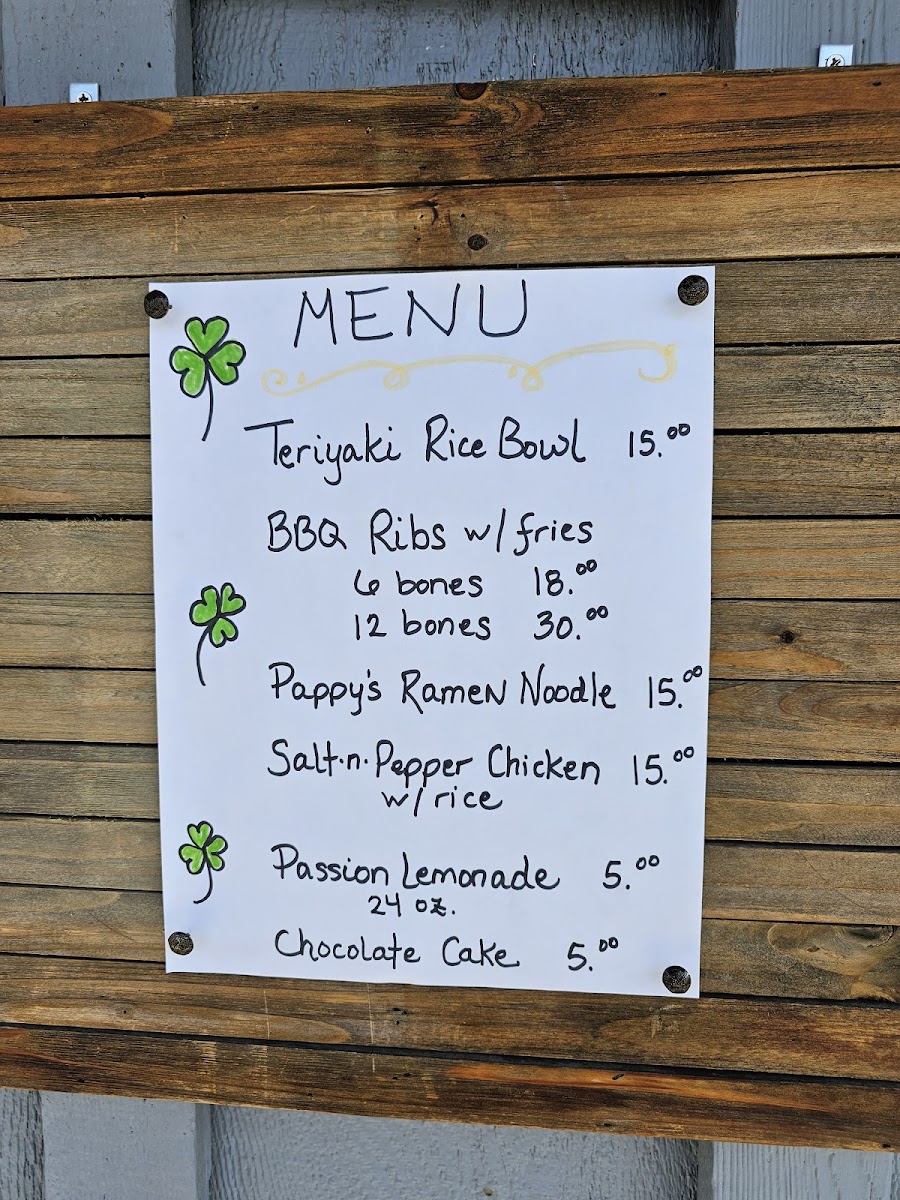 MENU
Teriyaki Rice Bowl 15.00
BBQ Ribs w/fries
6 bones 18.00
12 bones 30.00
Pappy's Ramen Noodle 15.00
Salt.n.Pepper Chicken 15.00
w/ rice
Passion Lemonade 5.00
24 oz.
Chocolate Cake 5.00